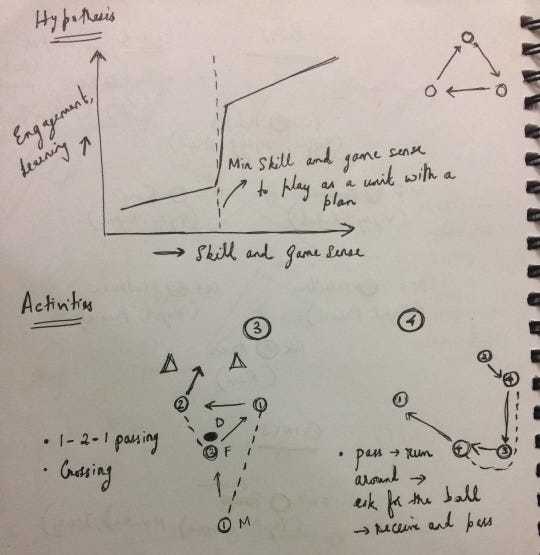 Hypothesis
Engagement,
Learning
Min skill and game sense
to play as a unit with a
plan
Skill and game sense
Activities
3
4
2
1
D
2 F
1 M
• 1-2-1 passing
• Crossing
2
4
1
4
3
• pass → run
around →
ask for the ball
→ receive and pass